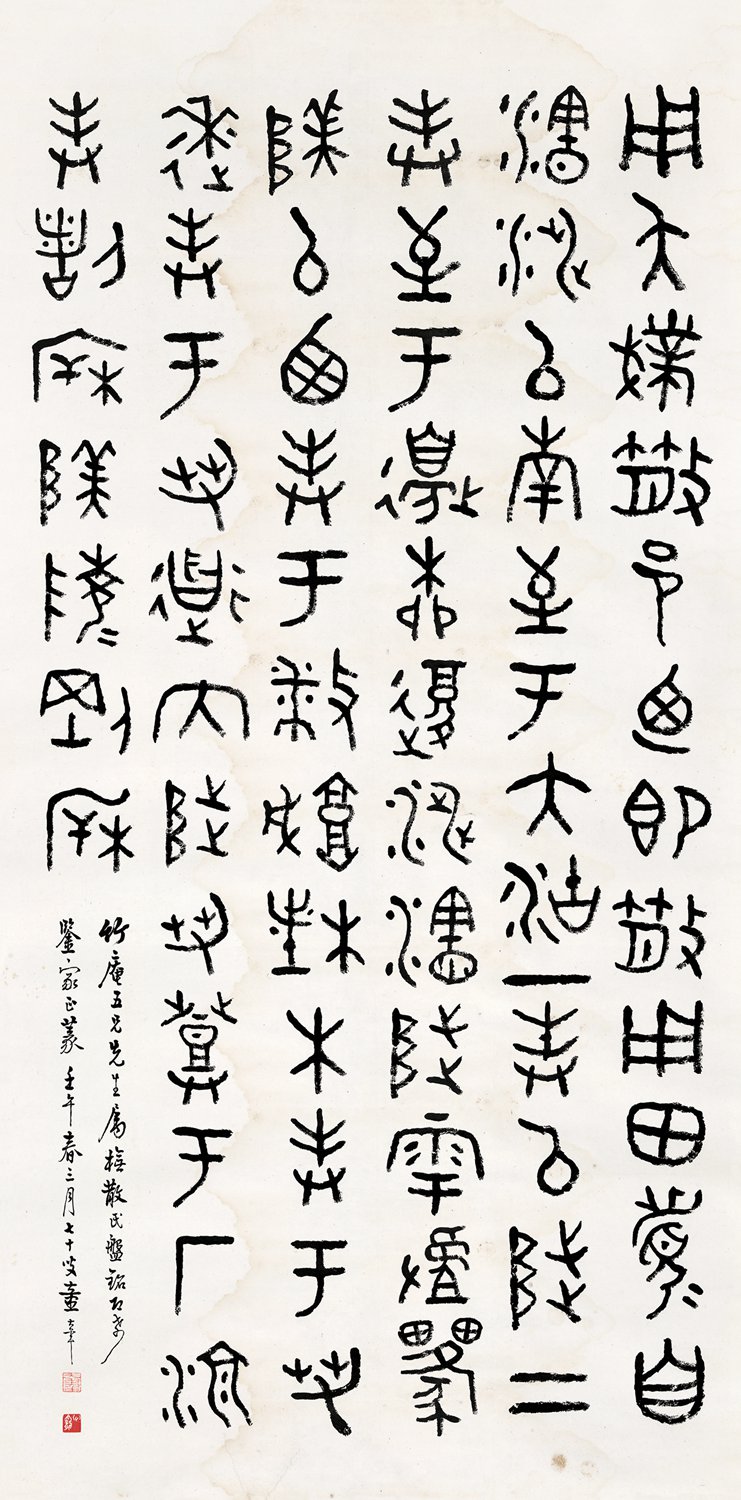 用夨撲散邑迺即散用田眉自
瀗涉以南至于大沽一奉以陟二
奉至于邊柳復涉瀗陟雩
陕以西奉于播城楮木奉于芻
逨奉于芻道内陟芻登于厂湶
奉割㭼陕陵剛㭼
竹庵五兄先生屬橅散氏盤銘即希
鑒家正篆 壬午春三月七十叟